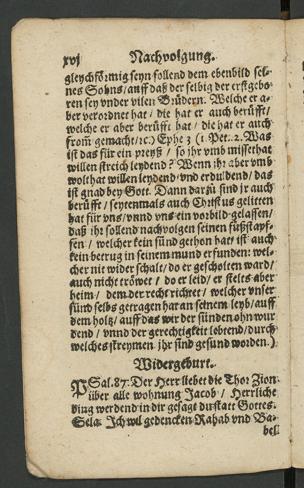 xvj Nachvolgung.
gleychförmig seyn sollend dem ebenbild sei-
nes Sohns / auff daß der selbig der erstgebo-
ren sey vnder vilen Brüdern. Welche er a-
ber verordnet hat / die hat er auch berüfft /
welche er aber berüfft hat / die hat er auch
from gemacht / ꝛc.) Ephe 3 (1 Pet. 2. Was
ist das für ein preyß / so ihr vmb missethat
willen streich leydend? Wenn ihr aber vmb
wolthat willen leydend / vnd erduldend / das
ist gnad bey Gott. Dann darzů sind jr auch
berüfft / seytenmals auch Christus gelitten
hat für vns / vnnd vns ein vorbild gelassen /
daß ihr sollend nachvolgen seinen fußstapf-
fen / welcher kein sünd gethon hat / ist auch
kein betrug in seinem mund erfunden: wel-
cher nit wider schalt / do er gescholten ward /
auch nicht tröwet / do er leid / er stelts aber
heim / dem der recht richtet / welcher vnser
sünd selbs getragen hat an seinem leyb / auff
dem holtz / auff das wir der sünden ohn wur
dend / vnnd der gerechtigkeit lebtend / durch
welches streymen jhr sind gesund worden.)
Widergeburt.
PSal. 87. Der Herr liebet die Thor Zion
über alle wohnung Jacob / Herrliche
ding werdend in dir gesagt du statt Gottes.
Sela. Ich wil gedencken Rahab vnd Ba-
bel